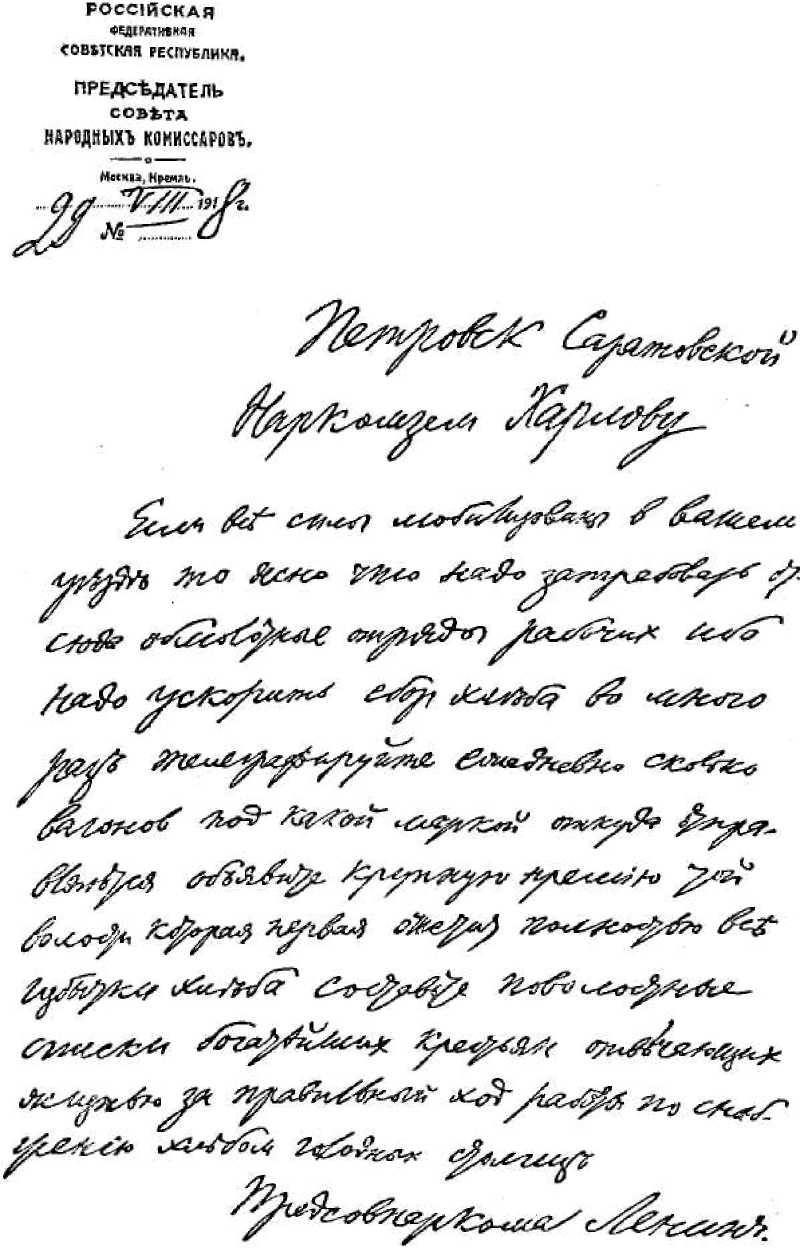 РОССІЙСКАЯ
ФЕДЕРАТИВНАЯ
СОВѢТСКАЯ РЕСПУБЛИКА.
ПРЕДСѢДАТЕЛЬ
СОВѢТА
НАРОДНЫХЪ КОМИССАРОВЪ.
Москва, Кремль.
29 VIII 1918 г.
№
Петровск Саратовской
Наркомзем Харлову
Если всѣ силы мобилизованы в вашем
уѣздѣ то ясно что надо затребовать от-
сюда обмолотные отряды рабочих ибо
надо ускорить сбор хлѣба во много
разъ телеграфируйте ежедневно сколько
вагонов под какой маркой откуда отпра-
вляется объявите крупную премію той
волости которая первая очистит полностью всѣ
избытки хлѣба составьте поволостные
списки богатѣйших крестьян отвѣчающих
жизнью за правильный ход работы по снаб-
женію хлѣбом голодных столицъ
Предсовнаркома Ленинъ.